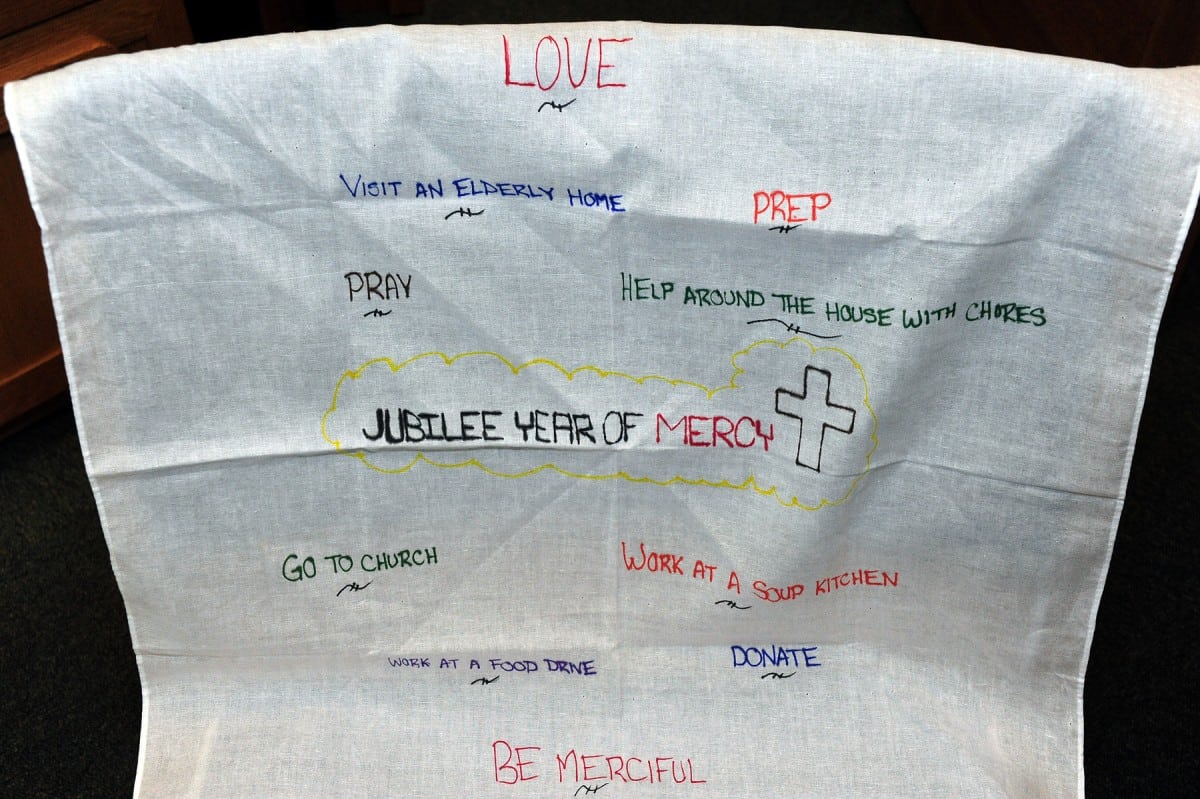 LOVE
VISIT AN ELDERLY HOME
PREP
PRAY
HELP AROUND THE HOUSE WITH CHORES
JUBILEE YEAR OF MERCY
GO TO CHURCH
WORK AT A SOUP KITCHEN
WORK AT A FOOD DRIVE
DONATE
BE MERCIFUL